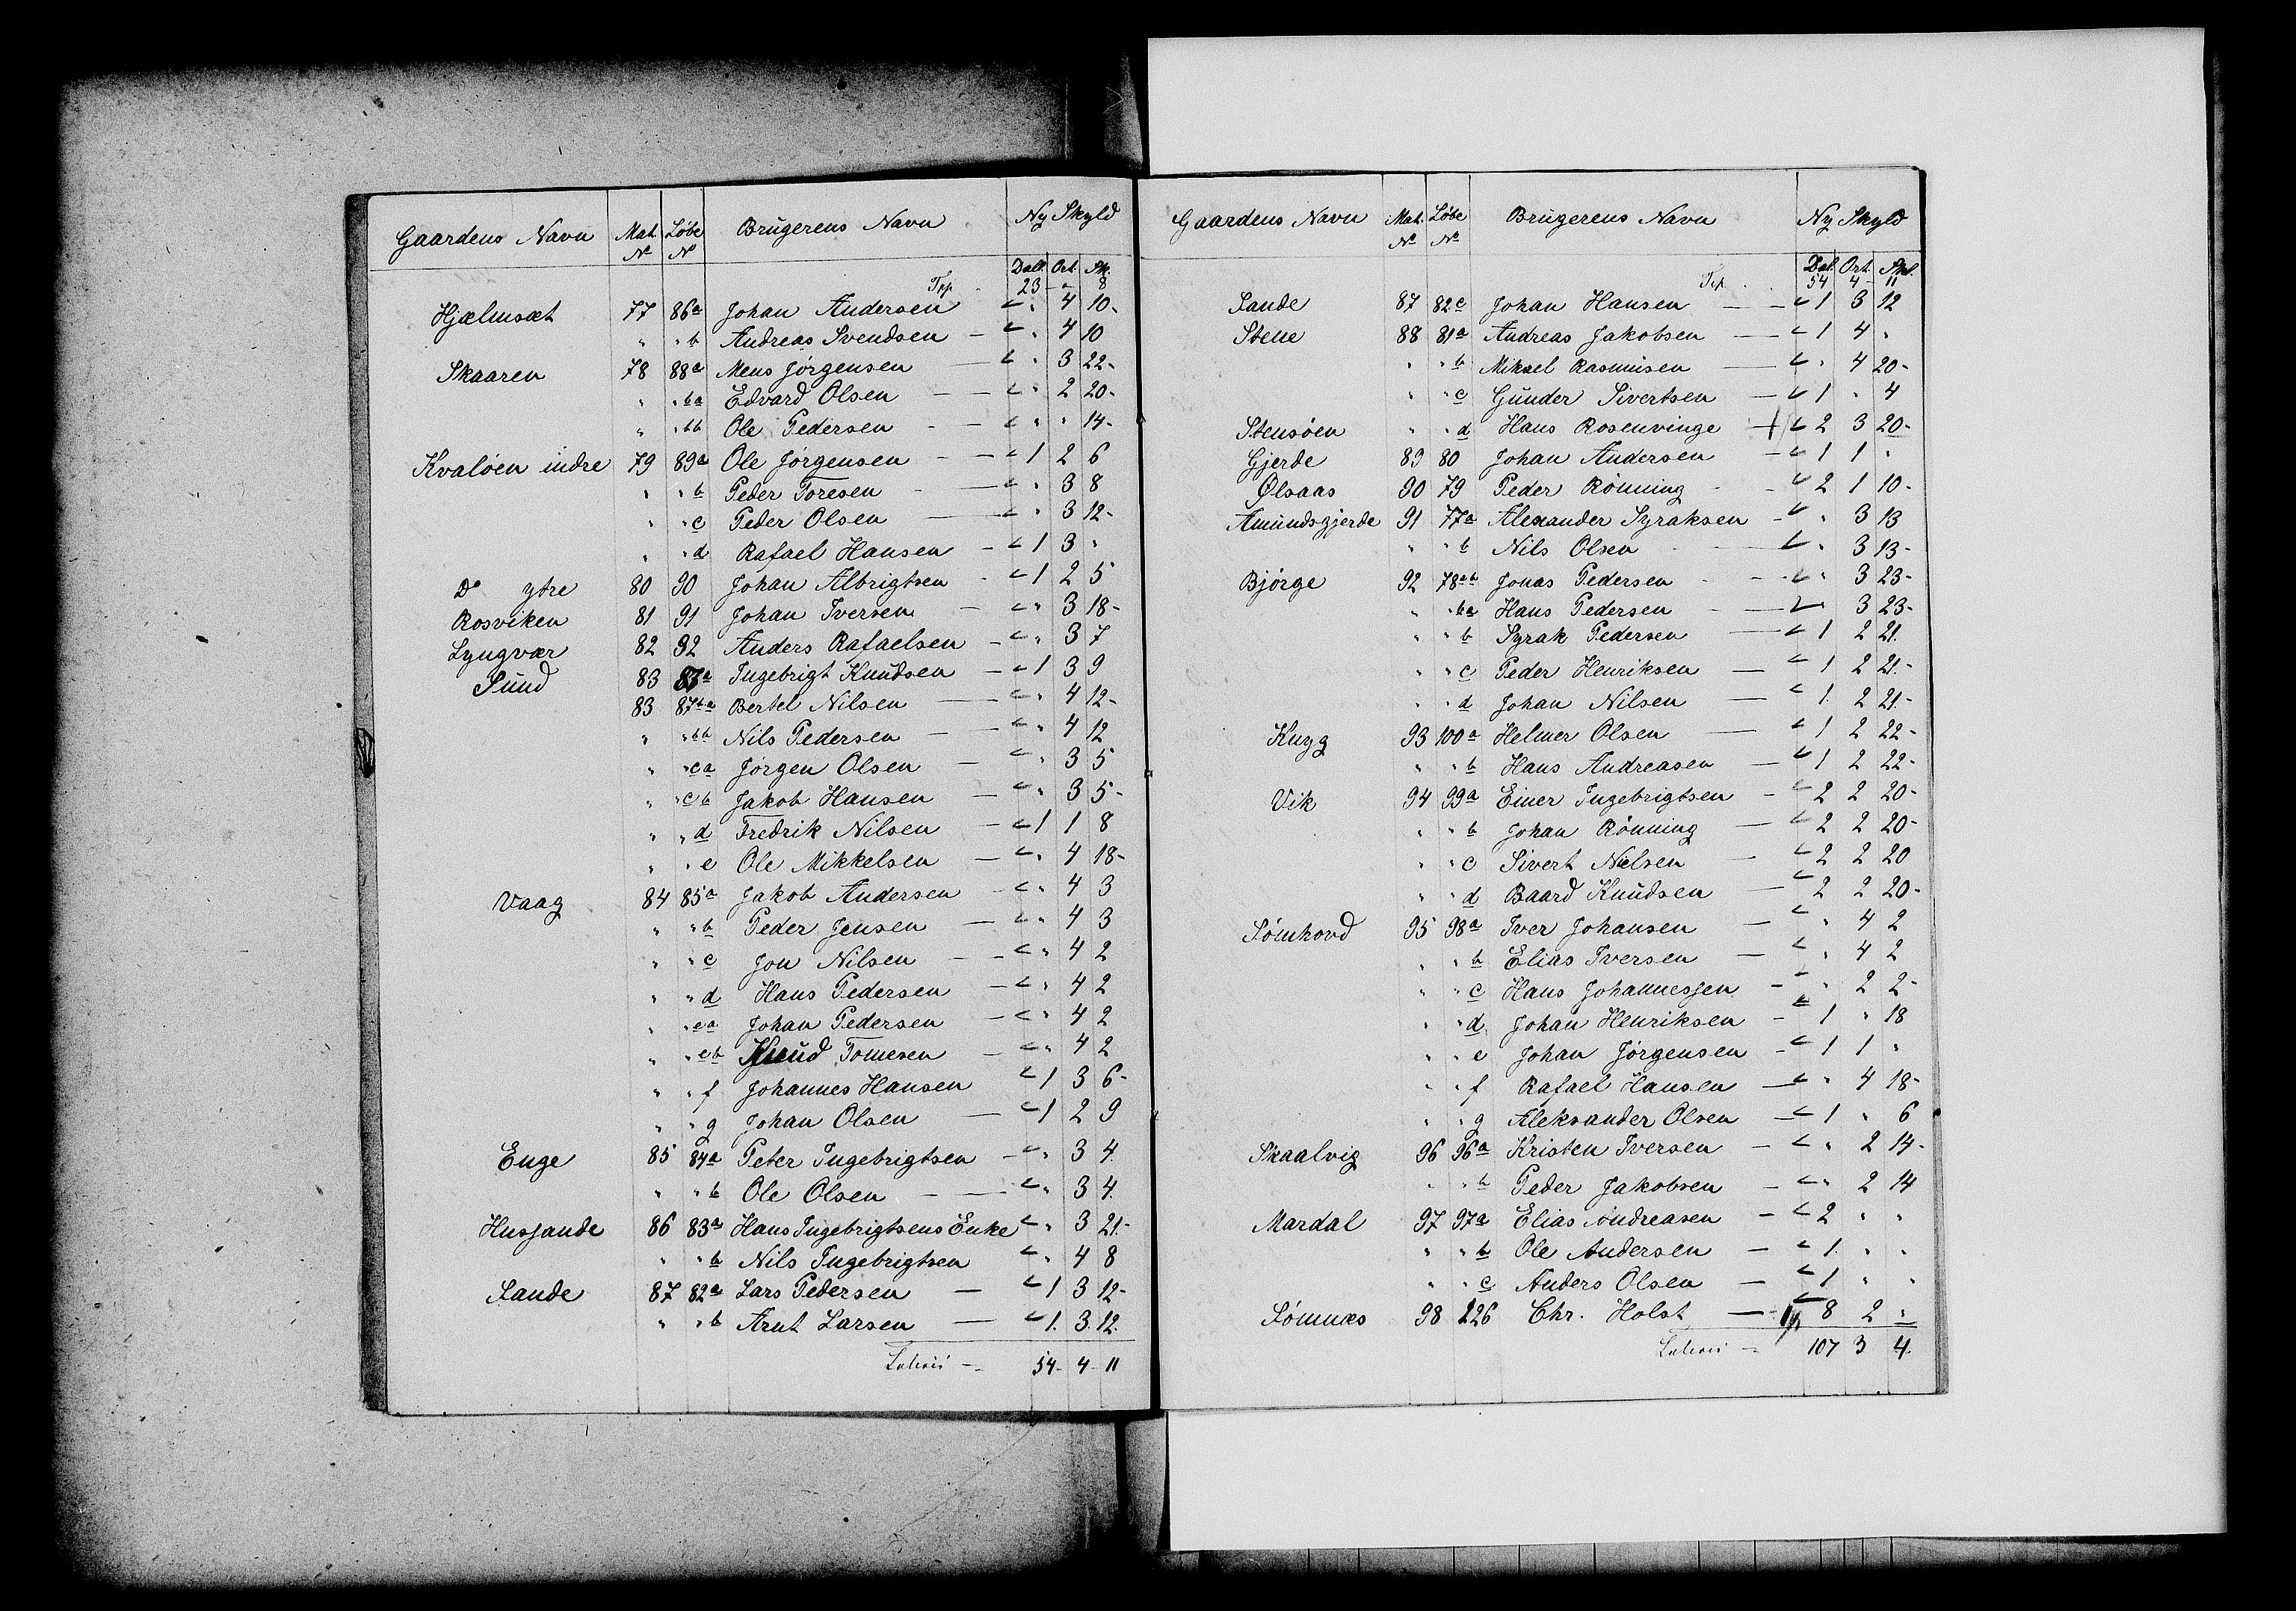 Gaardens Navn Mat. No Løbe No Brugerens Navn Ny Skyld
Dall. Ort. Sk.
Trp. 23 - " 8
Hjælmsæt 77 86a Johan Andersen " 4 10
" " b Andreas Svendsen - " 4 10
Skaaren 78 88a Mens Jørgensen - " 3 22
" " ba Edvard Olsen - " 2 20
" " bb Ole Pedersen - " " 14
Kvaløen indre 79 89a Ole Jørgensen - 1 2 6
" " b Peder Toresen - " 3 8
" " c Peder Olsen - " 3 12
" " d Rafael Hansen - 1 3 "
Do ytre 80 90 Johan Albrigtsen - 1 2 5
Rosviken 81 91 Johan Iversen - " 3 18
Lyngvær 82 92 Anders Rafaelsen - " 3 7
Sund 83 87a Ingebrigt Knudsen - 1 3 9
83 87ba Bertel Nilsen - " 4 12
" " bb Nils Pedersen - " 4 12
" " ca Jørgen Olsen - " 3 5
" " cb Jakob Hansen - " 3 5
" " d Fredrik Nilsen - 1 1 8
" " e Ole Mikkelsen - " 4 18
Vaag 84 85a Jakob Andersen - " 4 3
" " b Peder Jensen - " 4 3
" " c Jon Nilsen - " 4 2
" " d Hans Pedersen - " 4 2
" " ea Johan Pedersen - " 4 2
" " eb Knud Tomesen - " 4 2
" " f Johannes Hansen 1 3 6
" " g Johan Olsen - 1 2 9
Enge 85 84a Peter Ingebrigtsen - " 3 4
" " b Ole Olsen - " 3 4
Husjande 86 83a Hans Ingebrigtsens Enke " 3 21
" " b Nils Ingebrigtsen " 4 8
Sande 87 82a Lars Pedersen - 1 3 12
" " b Arnt Larsen - 1. 3. 12.
54 - 4 - 11
Gaardens Navn Mat. No Løbe No Brugerens Navn Ny Skyld
Dal. Ort. Skl.
Trp. 54 4 - 11
Sande 87 82c Johan Hansen - 1 3 12
Stene 88 81a Andreas Jakobsen - 1 4 "
" " b Mikael Rasmusen - " 4 20
" " c Gunder Sivertsen - 1 " 4
Stensøen " " d Hans Rosenvinge + 2 3 20
Gjerde 89 80 Johan Andersen - 1 1 "
Ølsaas 90 79 Peder Rønning - 2 1 10
Amundsgjerde 91 77a Alexander Syraksen - " 3 13
" " b Nils Olsen - " 3 13
Bjørge 92 78ab Jonas Pedersen - " 3 23
" " ba Hans Pedersen - " 3 23
" " b Syrak Pedersen - 1 2 21
" " c Peder Henriksen - 1 2 21
" " d Johan Nilsen - 1 2 21
Knyg 93 100a Helmer Olsen - 1 2 22
" " b Hans Andreasen - 1 2 22
Vik 94 99a Einer Ingebrigtsen - 2 2 20
" " b Johan Rønning - 2 2 20
" " c Sivert Nielsen - 2 2 20
" " d Baard Knudsen - 2 2 20
Sømhovd 95 98a Iver Johansen - " 4 2
" " b Elias Iversen - " 4 2
" " c Hans Johannesjen - " 2 2
" " d Johan Henriksen - 1 " 18
" " e Johan Jørgensen - 1 1 "
" " f Rafael Hansen - " 4 18
" " g Aleksander Olsen - 1 " 6
Skaalvig 96 96a Kristen Iversen - " 2 14
" " b Peder Jakobsen - " 2 14
Mardal 97 97a Elias Andreasen - 2 " "
" " b Ole Andersen - 1 " "
" " c Anders Olsen - 1 " "
Sømnæs 98 126 Chr. Holst - 8 2 "
107 3 4